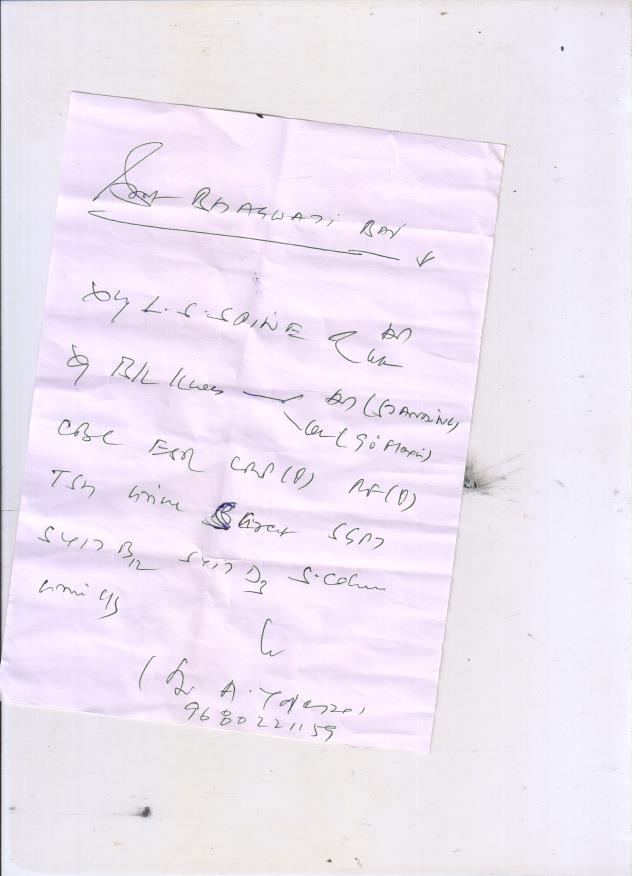 Smt BHAGWATI BAI
Xray L-S-SPINE AP
Lat
Xray B/L Knee AP (STANDING)
Lat (90° Flexion)
CBC ESR CRP(Q) RF(Q)
TSH Urine SGPT
S Vit B12 S Vit D3 S. Calcium
Urine C/S
(Dr A.
9680221159